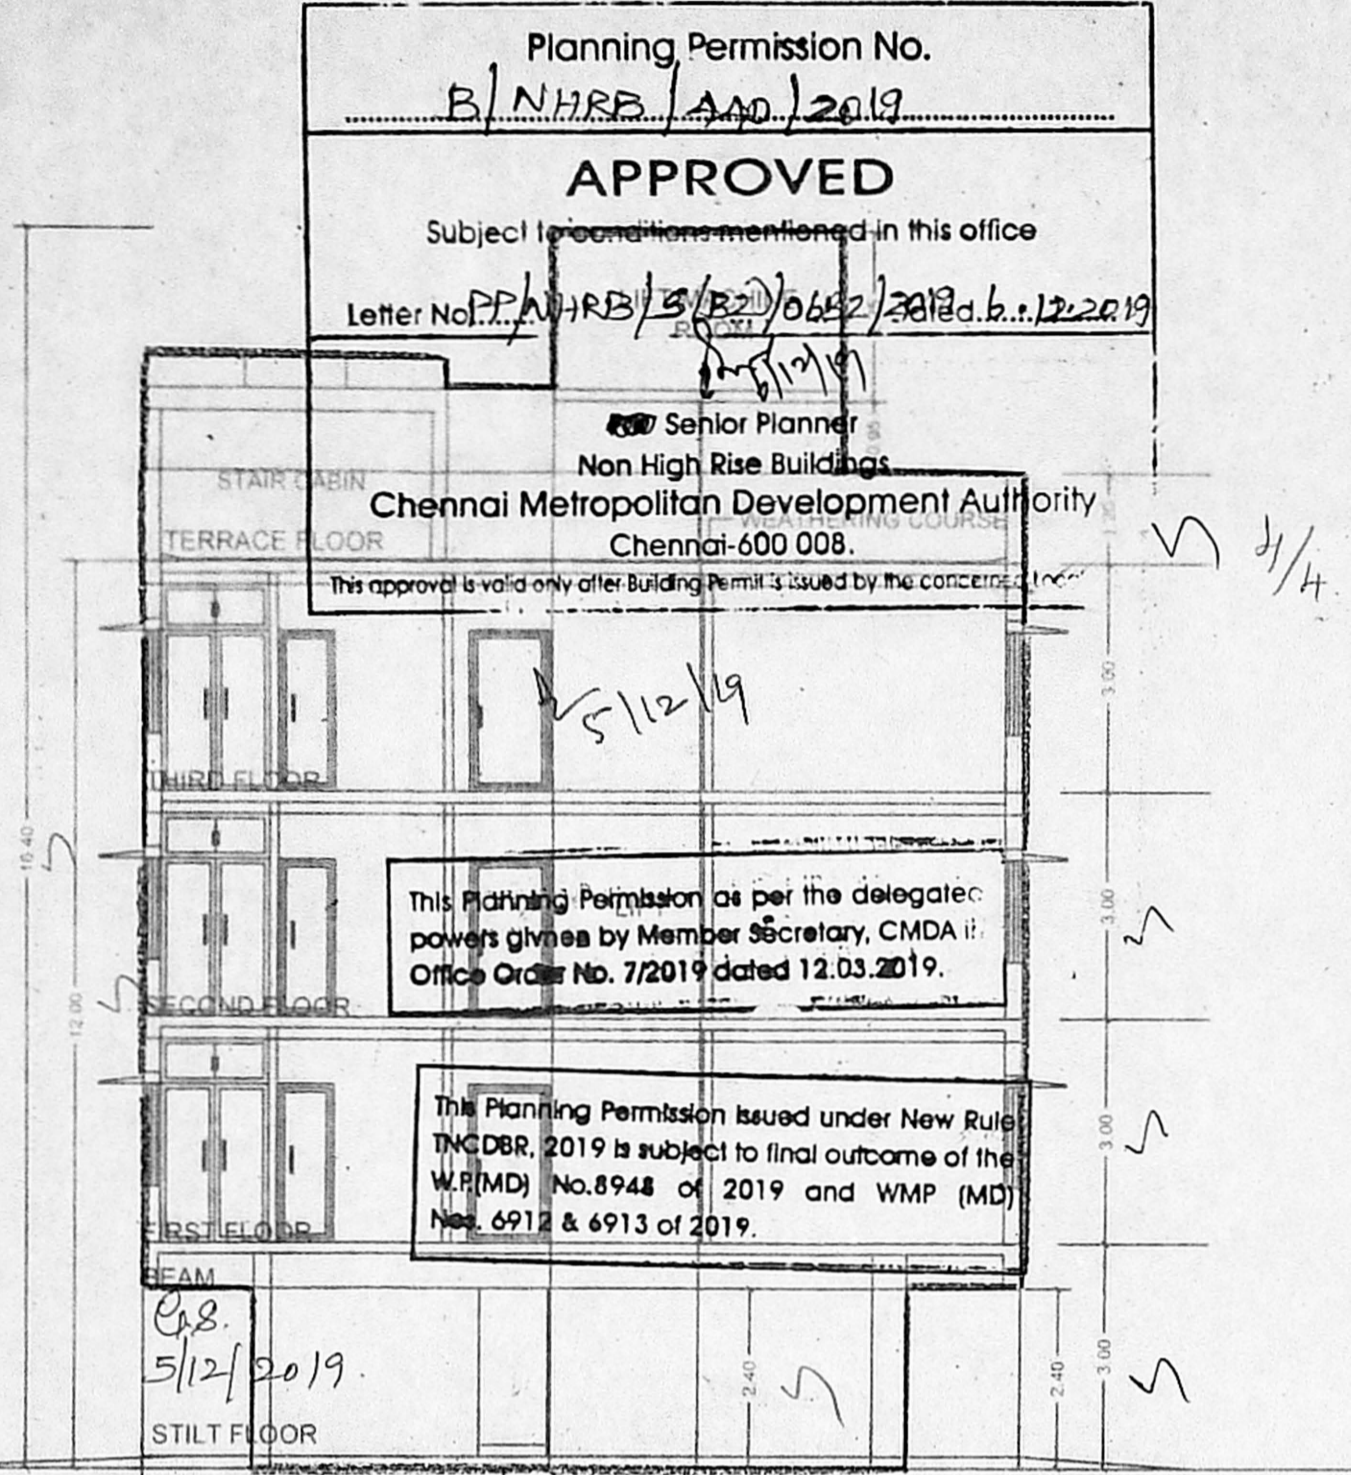 Planning Permission No.
B/NHRB/ /2019
APPROVED
Subject to conditions mentioned in this office
Letter No. PP/NHRB/S(B2)/0652/2019 dated 6.12.2019
LIFT MACHINE
ROOM
6/12/19
Senior Planner
Non High Rise Buildings
Chennai Metropolitan Development Authority
Chennai-600 008.
This approval is valid only after Building Permit is issued by the concerned
STAIR CABIN
WEATHERING COURSE
TERRACE FLOOR
4/4
0.95
3.00
5/12/19
THIRD FLOOR
16.40
This Planning Permission as per the delegated
powers givnen by Member Secretary, CMDA in
Office Order No. 7/2019 dated 12.03.2019.
3.00
SECOND FLOOR
12.00
This Planning Permission issued under New Rule
TNCDBR, 2019 is subject to final outcome of the
W.P.(MD) No.8948 of 2019 and WMP (MD)
Nos. 6912 & 6913 of 2019.
3.00
FIRST FLOOR
BEAM
G.S.
5/12/2019.
2.40
2.40
3.00
STILT FLOOR